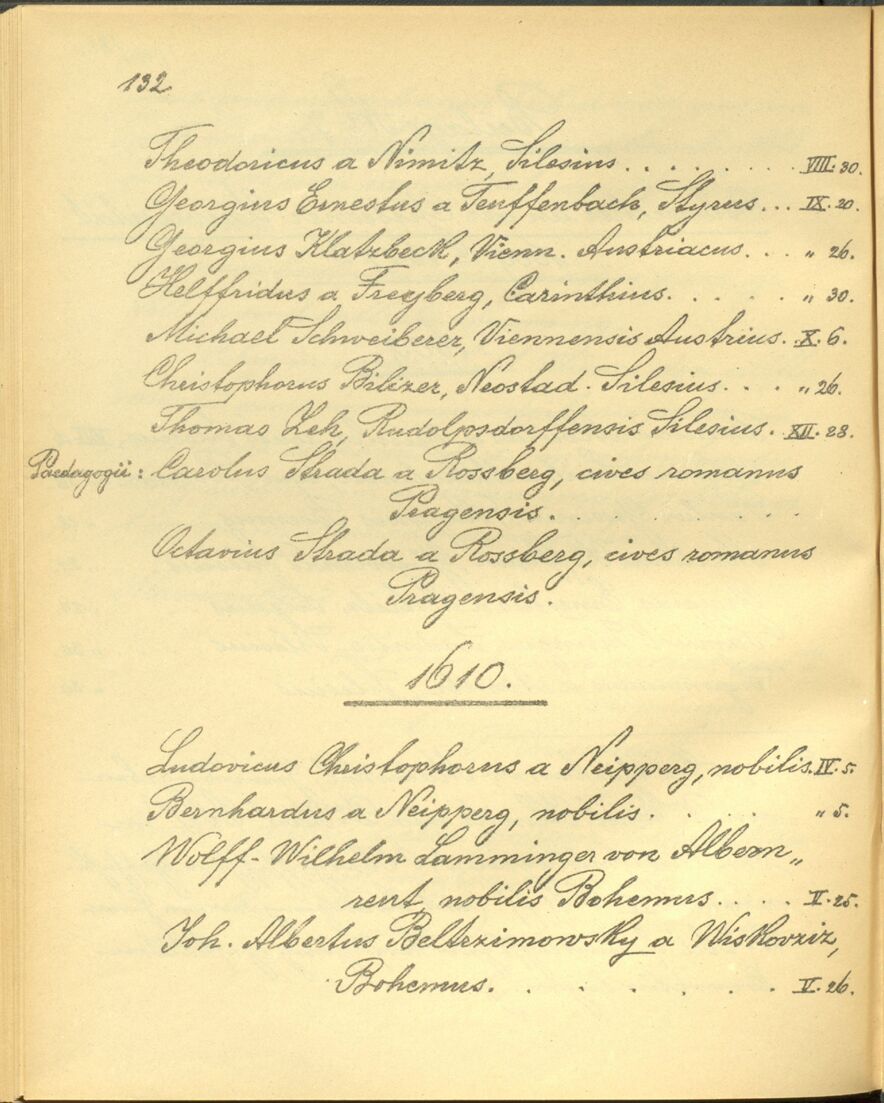 132
Theodoricus a Nimitz, Silesius . . . . . . . . VIII. 30.
Georgius Ernestus a Teuffenbach, Styrus... IX. 20.
Georgius Klatzbeck, Vienn. Austriacus. . . „ 26.
Helffridus a Freyberg, Carinthius. . . . . „ 30.
Michael Schweiberer, Viennensis Austrius. X. 6.
Christophorus Bilizer, Neostad. Silesius. . . „ 26.
Thomas Zeh, Rudolpsdorffensis Silesius. XII. 28.
Paedagogii: Carolus Strada a Rossberg, cives romanus
Pragensis. . . . . . . .
Octavius Strada a Rossberg, cives romanus
Pragensis.
1610.
Ludovicus Christophorus a Neipperg, nobilis. IV. 5.
Bernhardus a Neipperg, nobilis. . . . . „ 5.
Wolff-Wilhelm Lamminger von Albern„
reut, nobilis Bohemus. . . . V. 25.
Joh. Albertus Beltrzimowsky a Wiskovziz,
Bohemus. . . . . . . . V. 26.